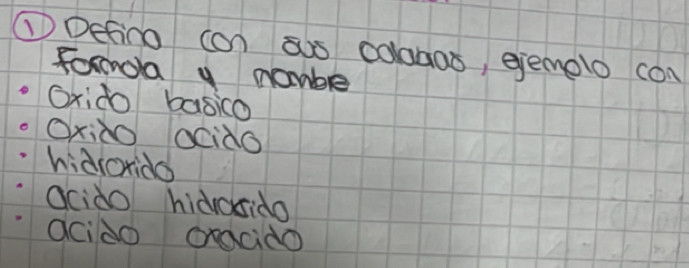 ① Defina con sus palabras, ejemplo con
formola y nombre
• Oxido basico
• Oxido acido
• hidroxido
• acido hidracido
• acido oxacido